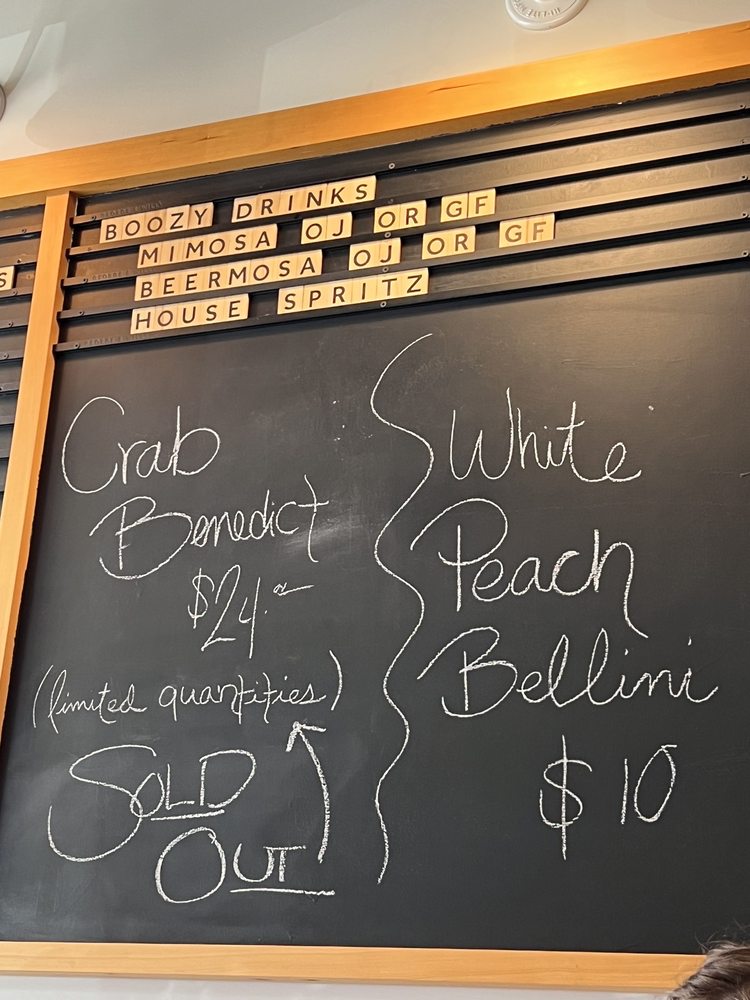 BOOZY DRINKS
MIMOSA OJ OR GF
BEERMOSA OJ OR GF
HOUSE SPRITZ
S
Crab
Benedict
$24.00
(limited quantities)
SOLD
OUT
White
Peach
Bellini
$10